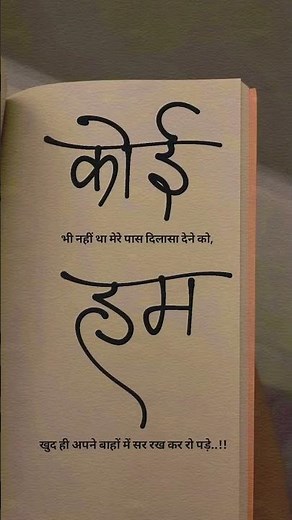 कोई
भी नहीं था मेरे पास दिलासा देने को,
हम
खुद ही अपने बाहों में सर रख कर रो पड़े..!!